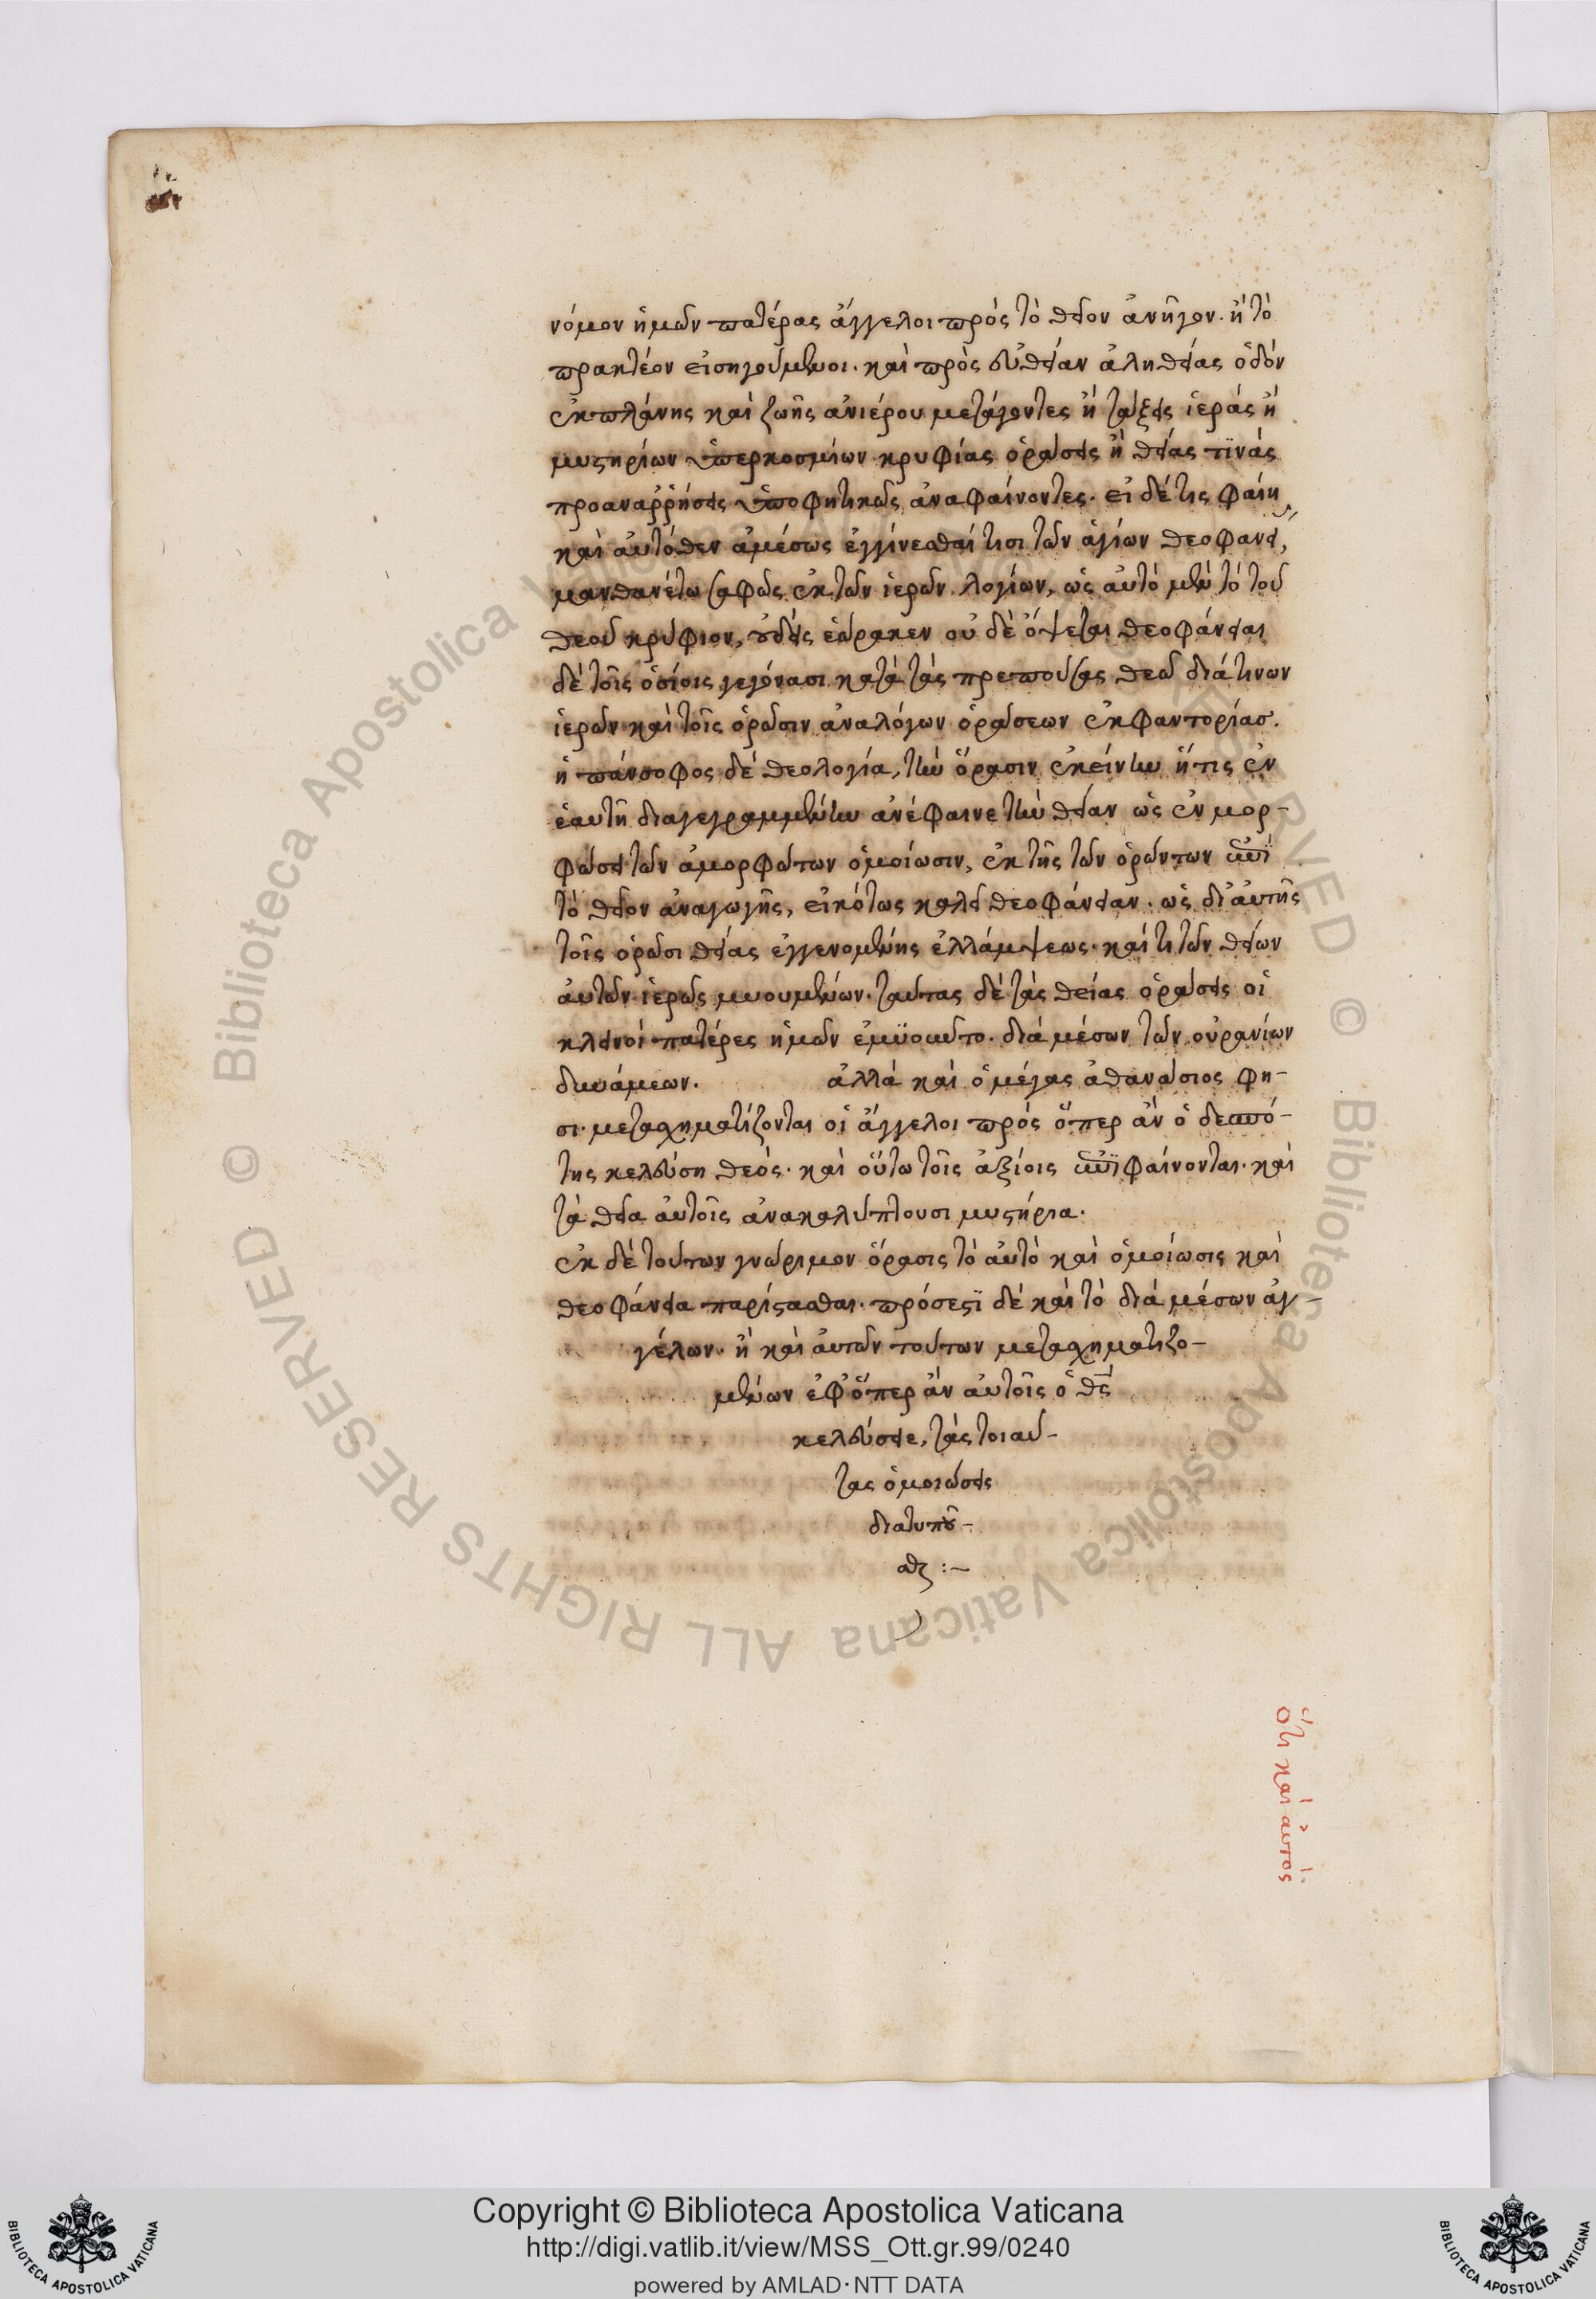 νόμον ἡμῶν πατέρας ἄγγελοι πρὸς τὸ θεῖον ἀνῆγον· ἢ τὸ
πρακτέον εἰσηγούμενοι· καὶ πρὸς εὐθεῖαν ἀληθείας ὁδὸν
ἐκ πλάνης καὶ ζωῆς ἀνιέρου μετάγοντες ἢ τάξεις ἱερὰς ἢ
μυστηρίων ὑπερκοσμίων κρυφίας ὁράσεις ἢ θείας τϊνὰς
προαναῤῥήσεις ὑποφητικῶς ἀναφαίνοντες· εἰ δέ τις φαίη
καὶ αὐτόθεν ἀμέσως ἐγγίνεσθαί τισι τῶν ἁγίων θεοφανεί,
μανθανέτω σαφῶς ἐκ τῶν ἱερῶν λογίων, ὡς αὐτὸ μὲν τὸ τοῦ
θεοῦ κρύφιον, οὐδεὶς ἑώρακεν οὐ δὲ ὄψεται θεοφάνειαι
δὲ τοῖς ὁσίοις γεγόνασι κατὰ τὰς πρεπούσας θεῶ διά τινων
ἱερῶν καὶ τοῖς ὁρῶσιν ἀναλόγων ὁράσεων ἐκφαντορίας.
ἡ πάνσοφος δὲ θεολογία, τὴν ὅρασιν ἐκείνην ἥτις ἐν
ἑαυτῆ διαγεγραμμένην ἀνέφαινε τὴν θείαν ὡς ἐν μορ-
φώσει τῶν ἀμορφώτων ὁμοίωσιν, ἐκ τῆς τῶν ὁρώντων ἐπὶ
τὸ θεῖον ἀναγωγῆς, εἰκότως καλεῖ θεοφάνειαν· ὡς δι αὐτῆς
τοῖς ὁρῶσι θείας ἐγγενομένης ἐλλάμψεως· καί τι τῶν θείων
αὐτῶν ἱερῶς μυουμένων· ταύτας δὲ τὰς θείας ὁράσεις οἱ
κλεινοὶ πατέρες ἡμῶν ἐμϋοῦντο· διὰ μέσων τῶν οὐρανίων
δυνάμεων. ἀλλὰ καὶ ὁ μέγας ἀθανάσιος φη-
σι· μετασχηματίζονται οἱ ἄγγελοι πρὸς ὅπερ ἂν ὁ δεσπό-
της κελεύση θεός· καὶ οὕτω τοῖς ἀξίοις ἐπιφαίνονται· καὶ
τὰ θεῖα αὐτοῖς ἀνακαλύπτουσι μυστήρια.
ἐκ δὲ τούτων γνώριμον ὅρασις τὸ αὐτὸ καὶ ὁμοίωσις καὶ
θεοφάνεια παρίστασθαι· πρόσεστϊ δὲ καὶ τὸ διὰ μέσων ἀγ-
γέλων· ἢ καὶ αὐτῶν τούτων μετασχηματιζο-
μένων ἐφ ὅπερ ἂν αὐτοῖς ὁ θς
κελεύσειε, τὰς τοιαύ-
τας ὁμοιώσεις
διατυποῦ-
σθαι :~
ὅτι καὶ αὐτὸς
Copyright © Biblioteca Apostolica Vaticana
http://digi.vatlib.it/view/MSS_Ott.gr.99/0240
powered by AMLAD·NTT DATA
BIBLIOTECA APOSTOLICA VATICANA
BIBLIOTECA APOSTOLICA VATICANA